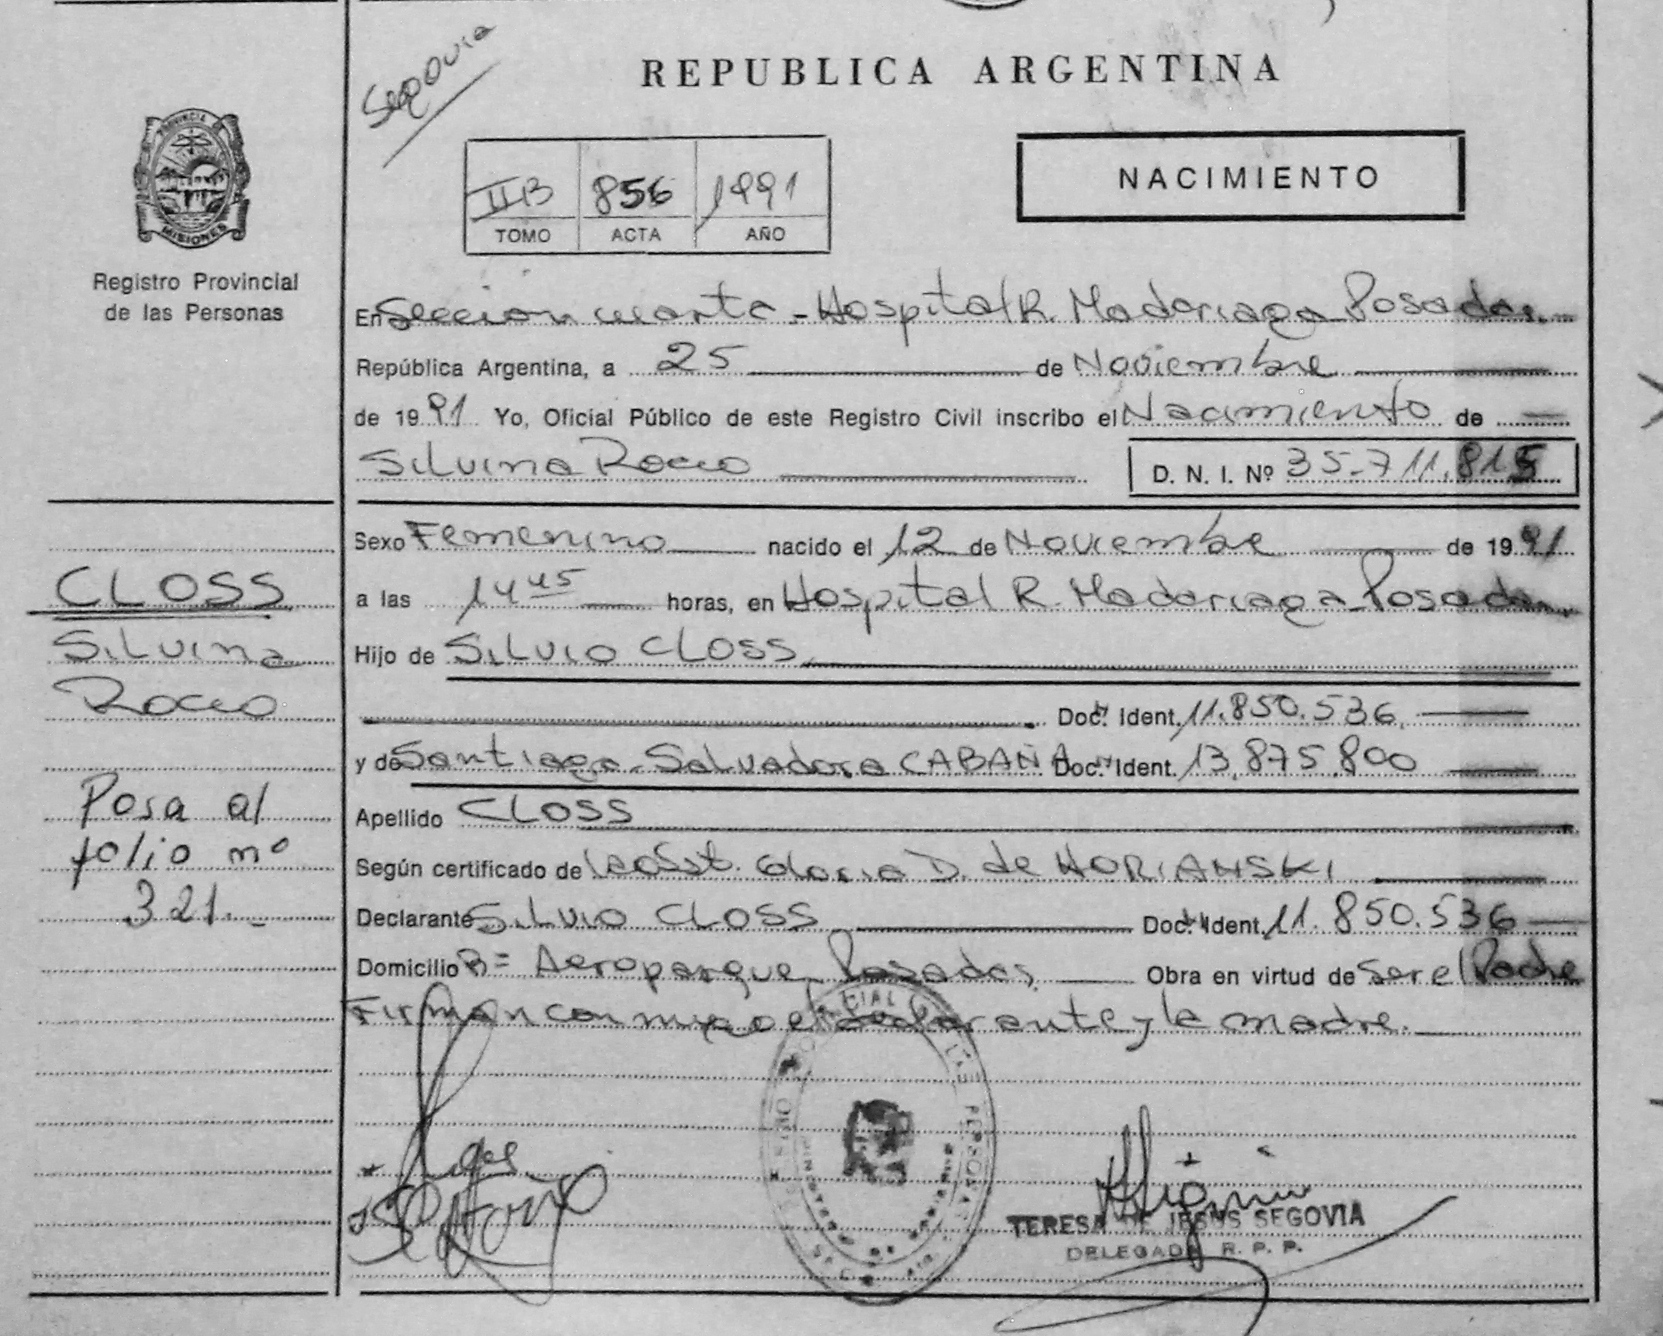 Segovia
REPUBLICA ARGENTINA
IIB 856 1991
TOMO ACTA AÑO
NACIMIENTO
PROVINCIA
MISIONES
Registro Provincial
de las Personas
En Sección cuarta - Hospital R. Madariaga Posadas
República Argentina, a 25 de Noviembre
de 1991 Yo, Oficial Público de este Registro Civil inscribo el Nacimiento de
Silvina Rocio D. N. I. Nº 35.711.815
Sexo Femenino nacido el 12 de Noviembre de 1991
a las 14 45 horas, en Hospital R. Madariaga Posadas
Hijo de Silvio CLOSS
Doc. Ident. 11.850.536
y de Santiaga Salvadora CABAÑA Doc. Ident. 13.875.800
Apellido CLOSS
Según certificado de Gloria D. de HORIANSKI
Declarante Silvio CLOSS Doc. Ident. 11.850.536
Domicilio Bº Aeroparque Posadas Obra en virtud de ser el Padre
Firman conmigo el declarante y la madre.
CLOSS
Silvina
Rocio
Pasa al
folio nº
321.
TERESA DE JESUS SEGOVIA
DELEGADA R. P. P.